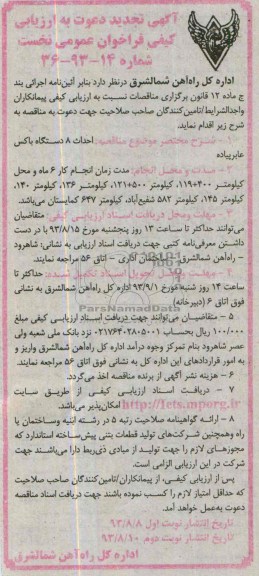 آگهی تجدید دعوت به ارزیابی
کیفی فراخوان عمومی نخست
شماره ۱۴-۹۳-۳۶
اداره کل راه‌آهن شمالشرق درنظر دارد بنابر آئین‌نامه اجرائی بند
ج ماده ۱۲ قانون برگزاری مناقصات نسبت به ارزیابی کیفی پیمانکاران
واجدالشرایط/تامین‌کنندگان صاحب صلاحیت جهت دعوت به مناقصه به
شرح زیر اقدام نماید.
۱- شرح مختصر موضوع مناقصه: احداث ۸ دستگاه باکس
عابرپیاده
۲- مدت و محل انجام: مدت زمان انجام کار ۶ ماه و محل
کیلومتر ۴۰۰+۱۱۹، کیلومتر ۵۰۰+۱۲۱، کیلومتر ۱۳۶، کیلومتر ۱۴۰،
کیلومتر ۱۴۵، کیلومتر ۵۸۲ شفیع‌آباد، کیلومتر ۶۴۷ کمایستان می‌باشد.
۳- مهلت ومحل دریافت اسناد ارزیابی کیفی: متقاضیان
می‌توانند حداکثر تا ساعت ۱۳ روز پنجشنبه مورخ ۹۳/۸/۱۵ با در دست
داشتن معرفی‌نامه کتبی جهت دریافت اسناد ارزیابی به نشانی: شاهرود
- راه‌آهن شمالشرق - ساختمان اداری - اتاق ۵۶ مراجعه نمایند.
۴- مهلت ومحل تحویل اسناد تکمیل شده: حداکثر تا
ساعت ۱۴ روز شنبه مورخ ۹۳/۹/۱ اداره کل راه‌آهن شمالشرق به نشانی
فوق اتاق ۶ (دبیرخانه)
۵- متقاضیان می‌توانند جهت دریافت اسناد ارزیابی کیفی مبلغ
۱۰۰/۰۰۰ ریال بحساب ۲۱۷۶۴۰۲۸۰۵۰۰۱ نزد بانک ملی شعبه ولی
عصر شاهرود بنام تمرکز وجوه درآمد اداره کل راه‌آهن شمالشرق واریز و
به امور قراردادهای این اداره کل به نشانی فوق اتاق ۵۶ مراجعه نمایند.
۶- هزینه نشر آگهی از برنده مناقصه اخذ می‌گردد.
۷- دریافت اسناد ارزیابی کیفی از طریق سایت
http://Iets.mporg.ir امکان‌پذیر می‌باشد.
۸- ارائه گواهینامه صلاحیت رتبه ۵ در رشته ابنیه وساختمان یا
راه وهمچنین شرکت‌های تولید قطعات بتنی پیش‌ساخته استاندارد که
مجوزهای لازم را جهت تولید از مبادی ذی‌ربط دارا می‌باشند جهت
شرکت در این ارزیابی الزامی است.
پس از ارزیابی کیفی، از پیمانکاران/تامین‌کنندگان صاحب صلاحیت
که حداقل امتیاز لازم را کسب نموده باشند جهت دریافت اسناد مناقصه
دعوت به‌عمل خواهد آمد.
تاریخ انتشار نوبت اول ۹۳/۸/۸
تاریخ انتشار نوبت دوم ۹۳/۸/۱۰
اداره کل راه‌آهن شمالشرق